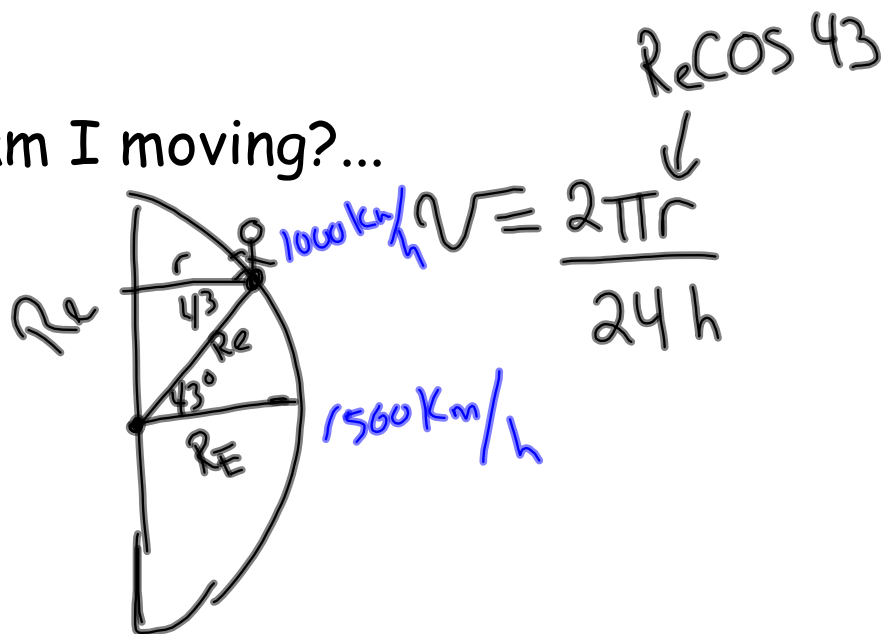 Re cos 43
m I moving?...
1000 km/h
v = 2πr / 24 h
r
43
Re
Re
43°
1500 Km/h
RE